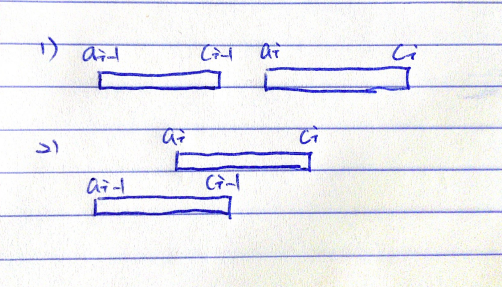 1) ai-1 ci-1 ai ci
2) ai ci
ai-1 ci-1